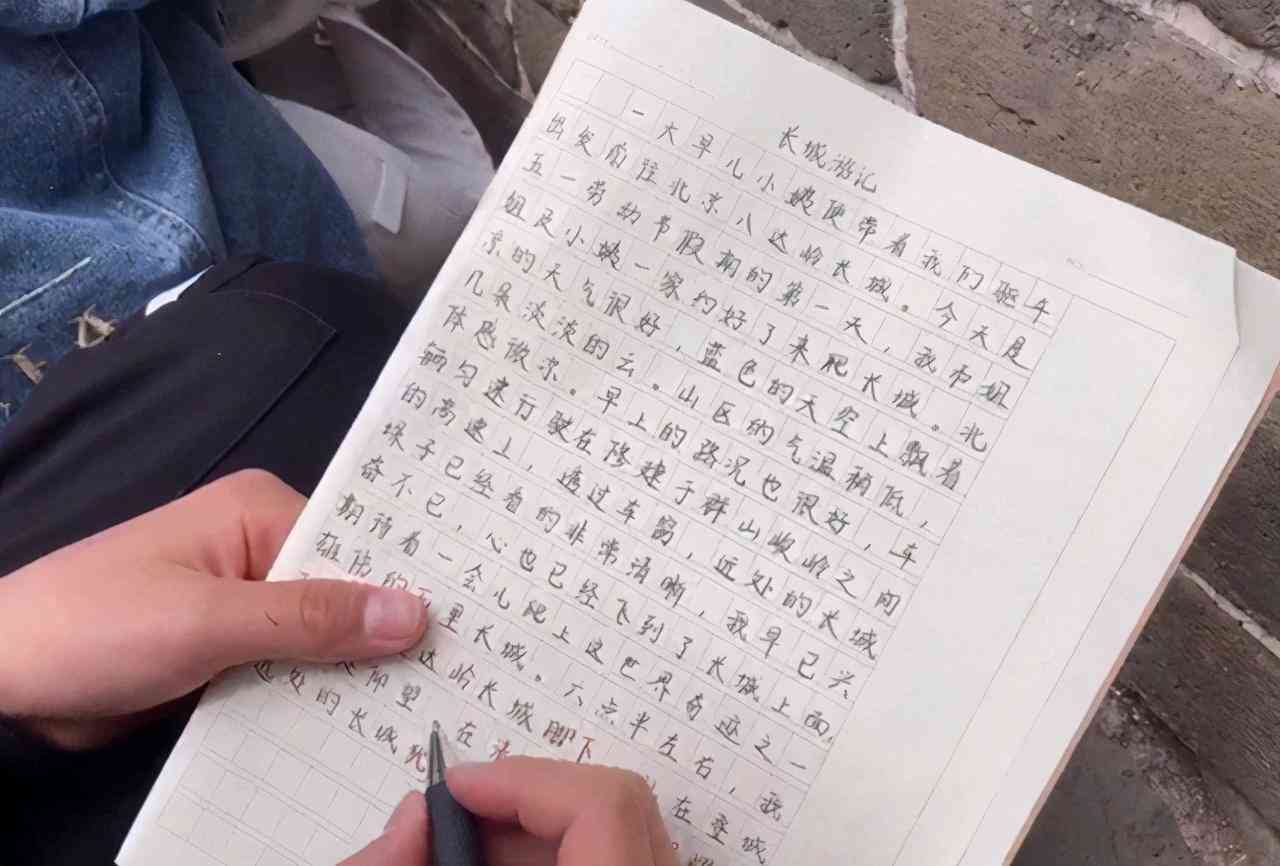 长城游记
一大早儿小姨便带着我们驱车
出发前往北京八达岭长城。今天是
五一劳动节假期的第一天，我和姐
姐及小姨一家约好了来爬长城。北
京的天气很好，蓝色的天空上飘着
几朵淡淡的云。山区的气温稍低，
体感微凉。早上的路况也很好，车
辆匀速行驶在修建于群山峻岭之间
的高速上，透过车窗，近处的长城
垛子已经看的非常清晰，我早已兴
奋不已，心也已经飞到了长城上面，
期待着一会儿爬上这世界奇迹之一
雄伟的万里长城。六点半左右，我
达岭长城脚下 在登城
仰望 在
远处的长城